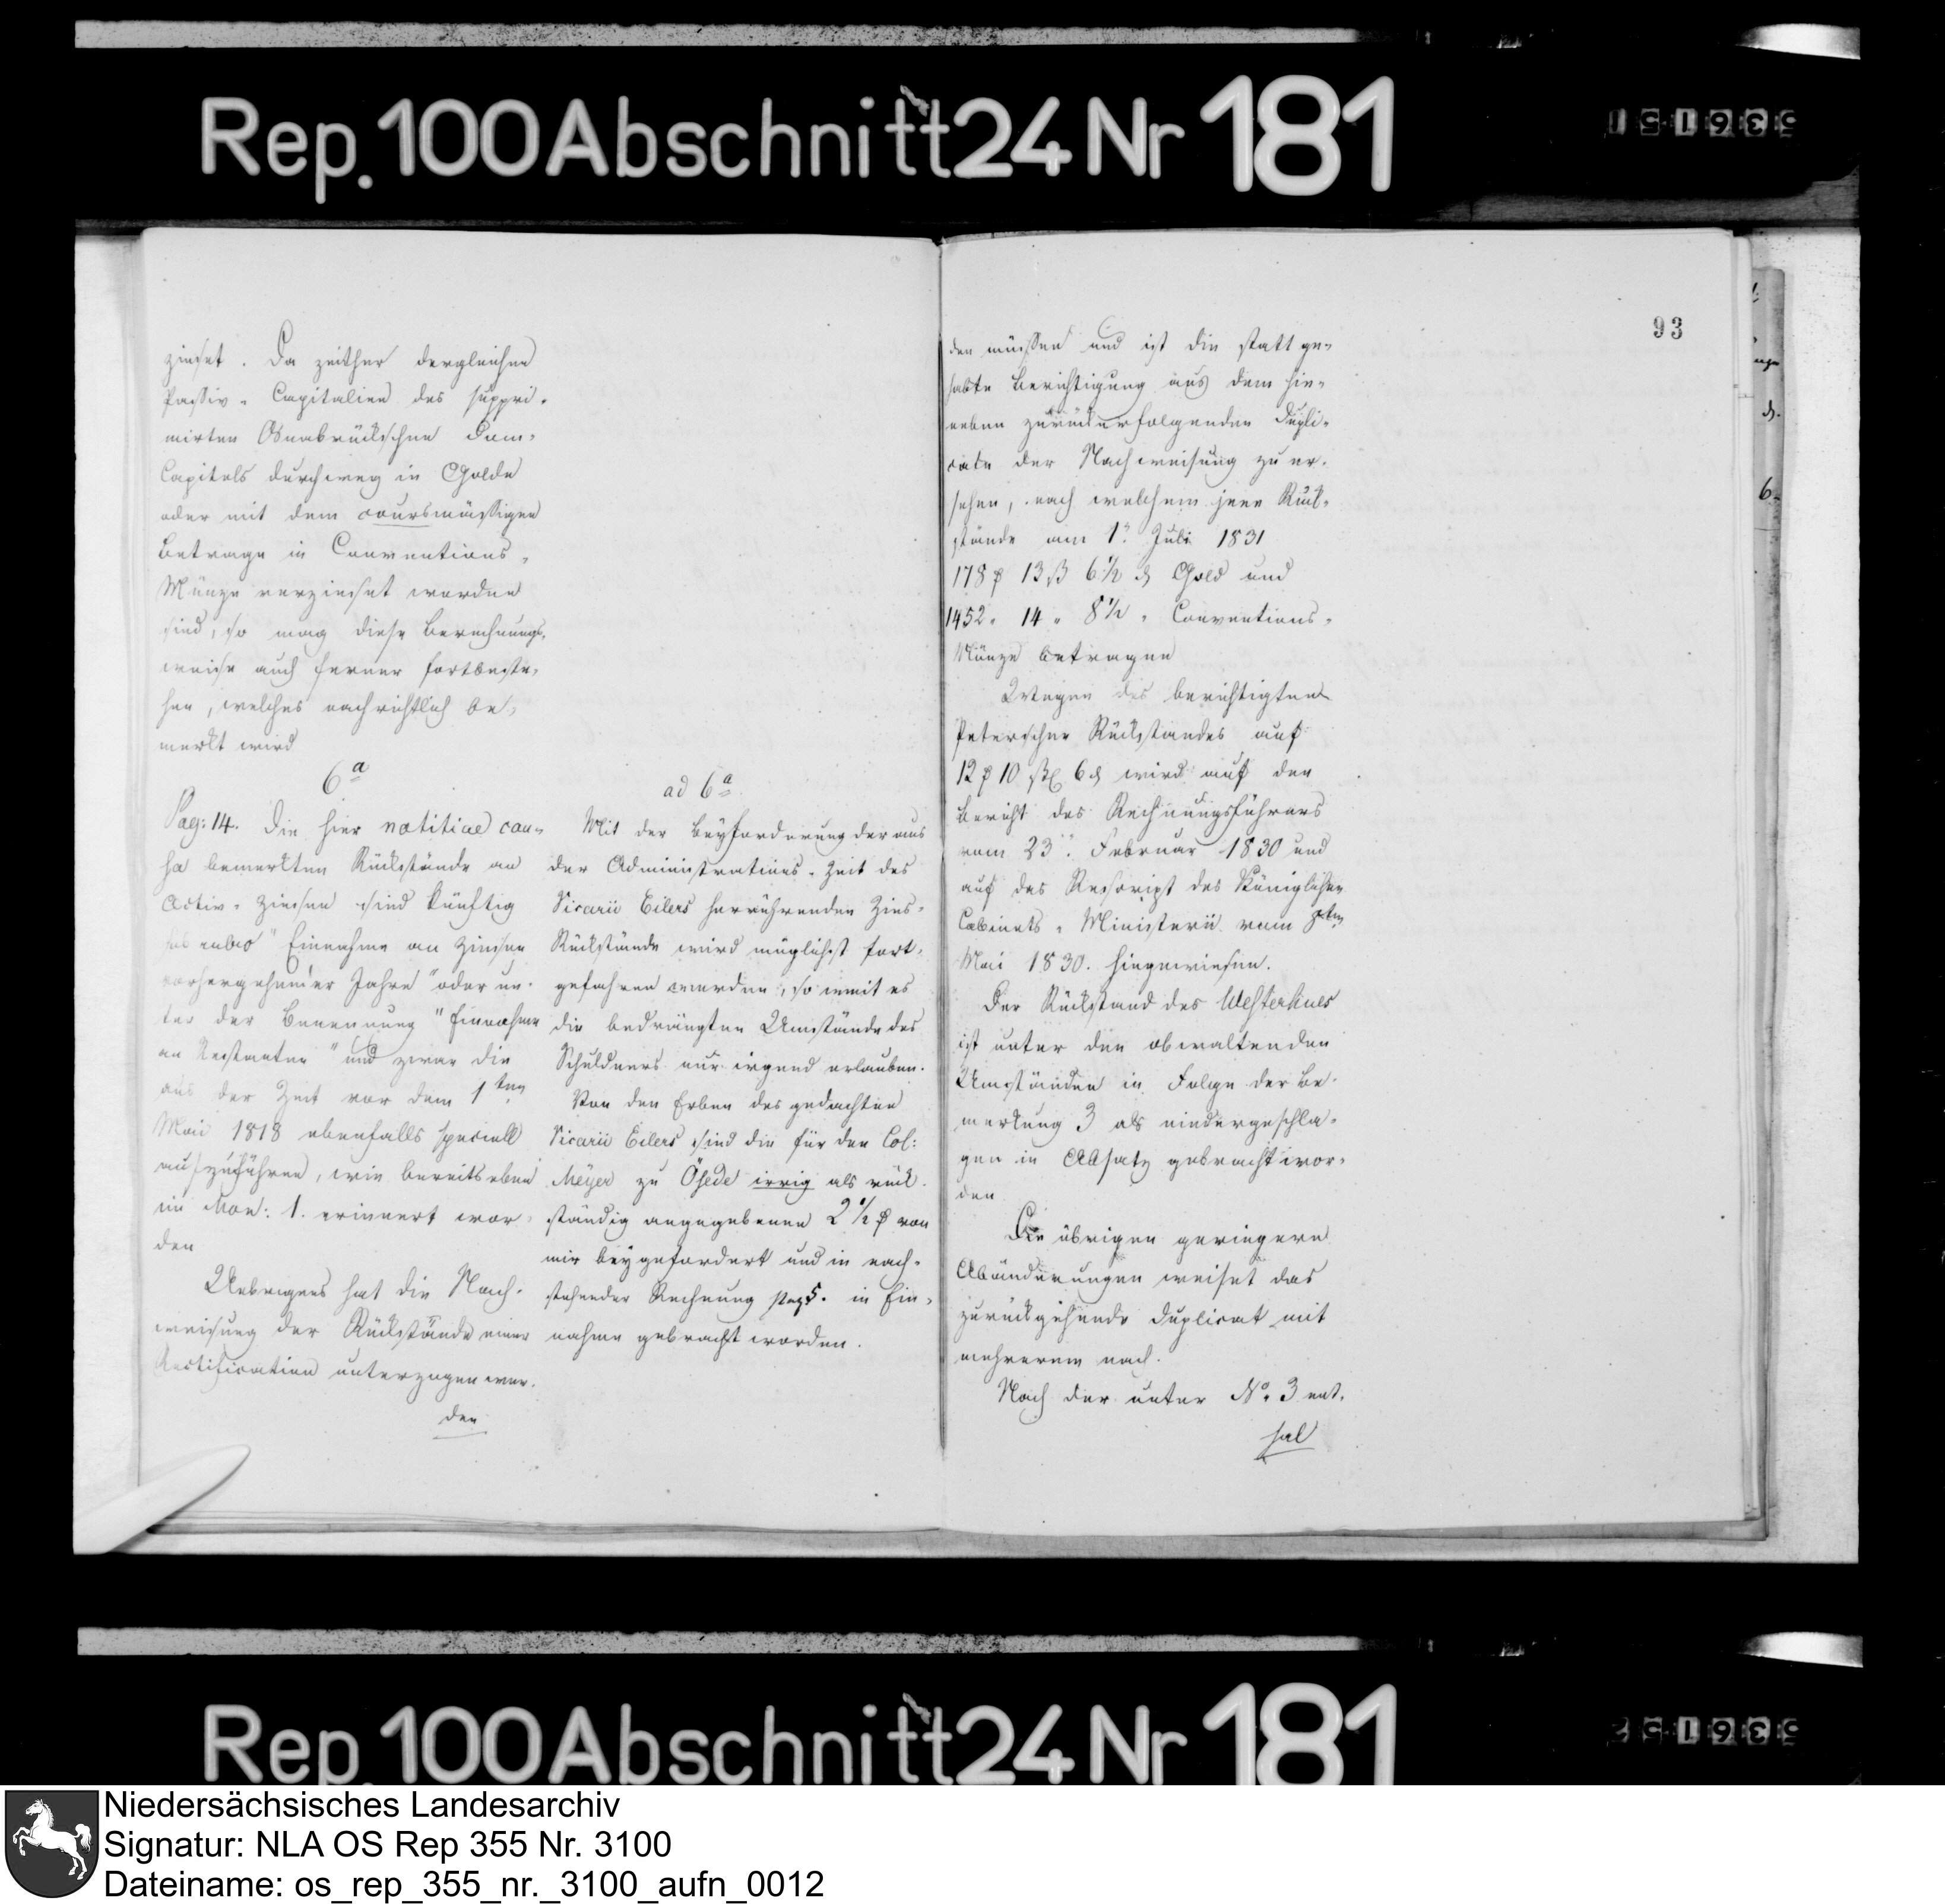 Rep. 100 Abschnitt 24 Nr 181
zinset. Da zeither dergleichen
Passiv-Capitalien des suppri-
mirten Osnabrückschen Dom-
Capitels durchweg in Golde
oder mit dem coursmässigen
Betrage in Conventions-
Münze verzinset worden
sind, so mag diese Berechnungs-
weise auch ferner fortbeste-
hen, welches nachrichtlich be-
merkt wird
6a
Pag: 14. Die hier notitiae cau-
sa bemerkten Rückstände an
Activ-Zinsen sind künftig
sub rubro "Einnahme an Zinsen
vorhergehender Jahre" oder un-
ter der Benennung "Einnahme
an Restanten" und zwar die
aus der Zeit vor dem 1ten
Mai 1818 ebenfalls speciell
aufzuführen, wie bereits oben
im Mon: 1. erinnert wor-
den
Uebrigens hat die Nach-
weisung der Rückstände einer
Rectification unterzogen wer-
den
ad 6a
Mit der Beyforderung der aus
der Administrations-Zeit des
Vicarii Eilers herrührenden Zins-
Rückstände wird möglichst fort-
gefahren werden, so weit es
die bedrängten Umstände des
Schuldners nur irgend erlauben.
Von den Erben des gedachten
Vicarii Eilers sind die für den Col:
Meyer zu Ösede irrig als rück-
ständig angegebenen 2 1/2 rt von
mir beygefordert und in nach-
stehender Rechnung pag 5. in Ein-
nahme gebracht worden.
93
den müssen und ist die statt ge-
habte Berichtigung aus dem hie-
neben zurückerfolgenden Dupli-
cate der Nachweisung zu er-
sehen, nach welchem jene Rück-
stände am 1. Juli 1831
178 rt 13 ß 6 1/2 d Gold und
1452 " 14 " 8 1/2 " Conventions-
Münze betragen
Wegen des berichtigten
Peterschen Rückstandes auf
12 rt 10 ß 6 d wird auf den
Bericht des Rechnungsführers
vom 23. Februar 1830 und
auf das Rescript des Königlichen
Cabinets-Ministerii vom
Mai 1830. hingewiesen.
Der Rückstand des Westerhues
ist unter den obwaltenden
Umständen in Folge der Be-
merkung 3 als niedergeschla-
gen in Absatz gebracht wor-
den
Die übrigen geringern
Abänderungen weiset das
zurückgehende Duplicat mit
mehrerem nach.
Nach der unter No. 3 ent-
hal
Rep. 100 Abschnitt 24 Nr 181
Niedersächsisches Landesarchiv
Signatur: NLA OS Rep 355 Nr. 3100
Dateiname: os_rep_355_nr._3100_aufn_0012